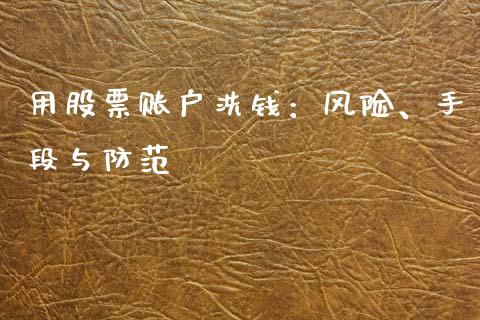 用股票账户洗钱：风险、手
段与防范